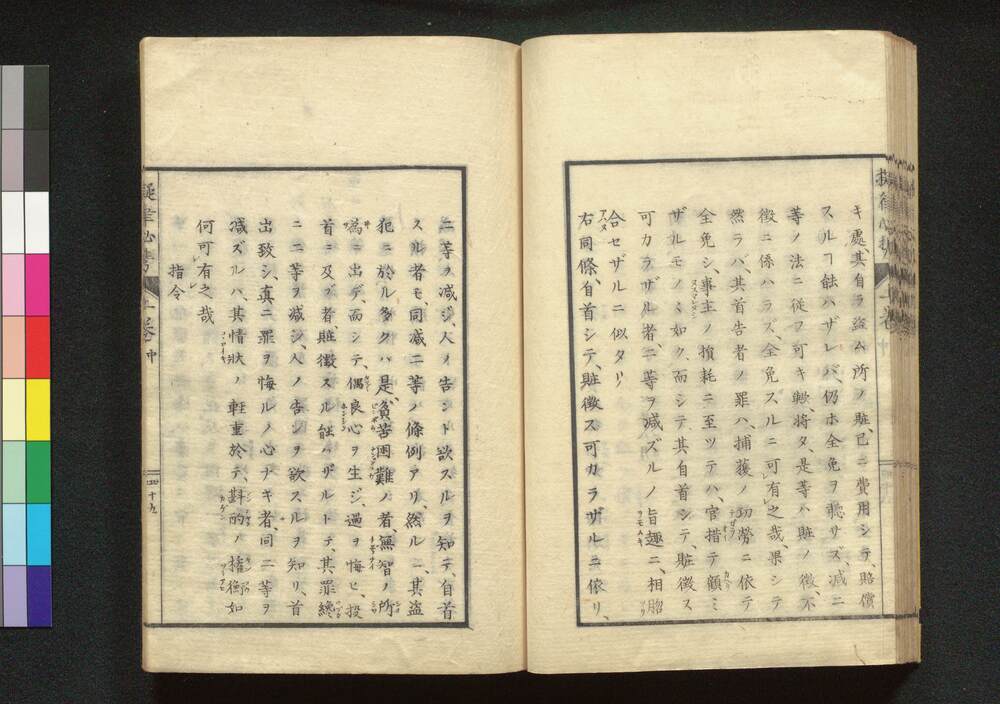 キ處、其自ラ盗ム所ノ賍、已ニ費用シテ、賠償
スルヿ能ハザレバ、仍ホ全免ヲ聽サズ、減二
等ノ法ニ從フ可キ歟、將タ、是等ハ賍ノ徴、不
徴ニ係ハラズ、全免スルニ可有之哉、果シテ
然ラバ、其首告者ノ罪ハ、捕獲ノ功勞ニ依テ
全免シ、事主ノ損耗ニ至ツテハ、官措テ顧ミ
ザルモノヽ如ク、而シテ、其自首シテ、賍徴ス
可カラザル者、二等ヲ減ズルノ旨趣ニ、相脗
合セザルニ似タリ
右同條、自首シテ、賍徴ス可カラザルニ依リ、
二等ヲ減ジ、人ノ告ント欲スルヲ知テ、自首
スル者モ、同減二等ノ條例アリ、然ルニ、其盗
犯ニ於ル多クハ是、貧苦困難ノ者、無智ノ所
爲ニ出デ、而シテ、偶良心ヲ生ジ、過ヲ悔ヒ、投
首ニ及ブ者、賍徴スル能ハザルトテ、其罪纔
ニ二等ヲ減シ、人ノ告ンヲ欲スルヲ知リ、首
出致シ、真ニ罪ヲ悔ルノ心ナキ者、同二等ヲ
減ズルハ、其情狀ノ輕重於テ、斟酌ノ權衡如
何可有之哉
指令
擬律必携
一卷
中
四十九